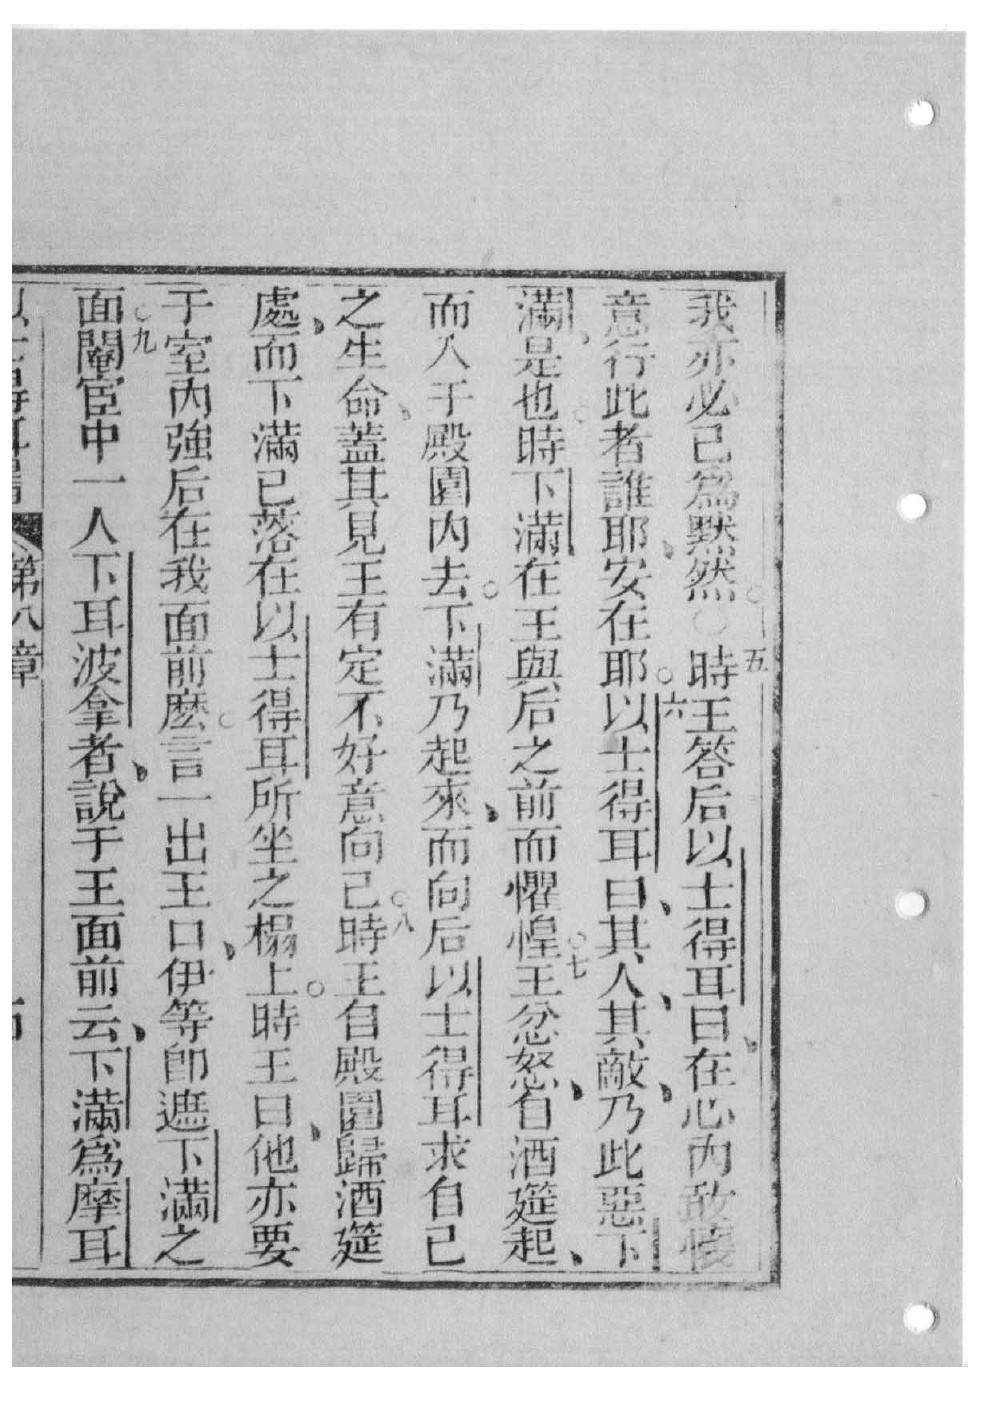 我亦必已爲默然○五時王答后以士得耳曰在心內敢懷
意行此者誰耶安在耶○六以士得耳曰其人其敵乃此惡下
滿是也時下滿在王與后之前而懼惶○七王忿怒自酒筵起
而入于殿園內去○下滿乃起來而向后以士得耳求自己
之生命蓋其見王有定不好意向己○八時王自殿園歸酒筵
處而下滿已落在以士得耳所坐之榻上○時王曰他亦要
于室內強后在我面前麽○言一出王口伊等卽遮下滿之
面○九閹宦中一人下耳波拿者說于王面前云下滿爲摩耳
以士得耳書 第八章